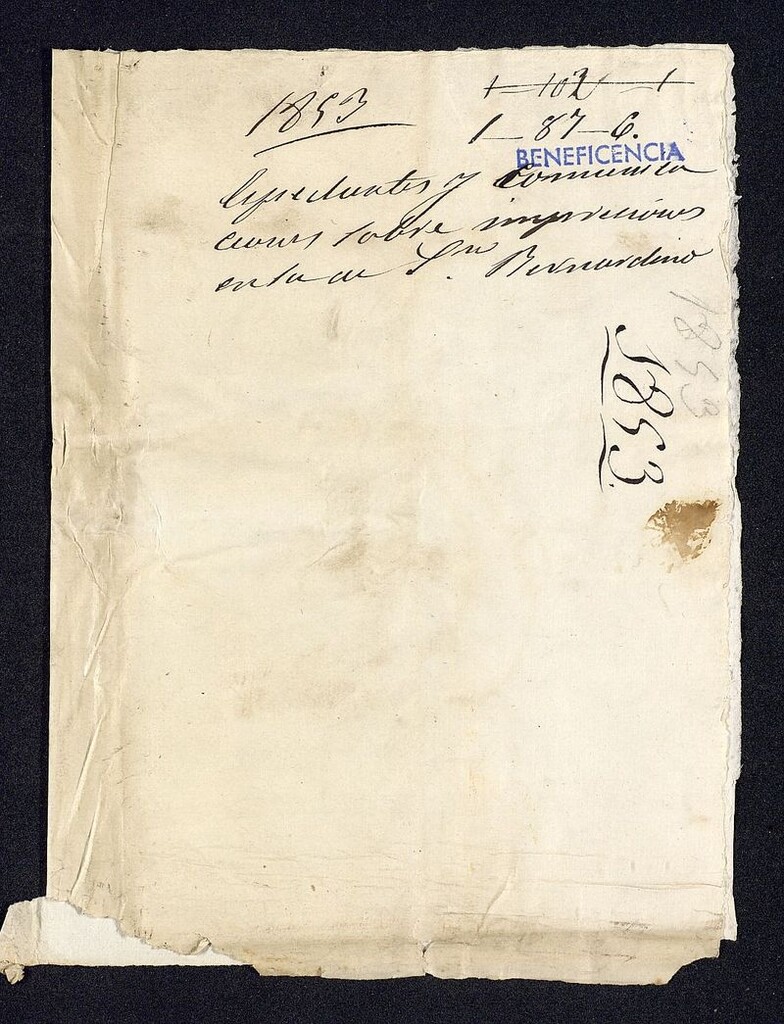 1853
1-102-1
1-87-6.
BENEFICENCIA
Espedientes y comunica
ciones sobre impresiones
en la de Sn. Bernardino
1853
1853.